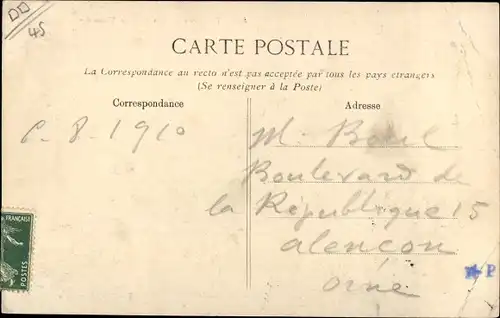 DD
45
CARTE POSTALE
La Correspondance au recto n'est pas acceptée par tous les pays étrangers
(Se renseigner à la Poste)
Correspondance
Adresse
6. 8. 1910
M. Borel
Boulevard de
la République 15
alençon
orne
FRANÇAISE
POSTES
P